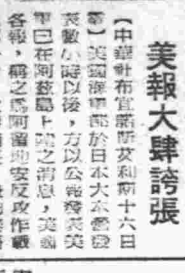 美報大肆誇張
【中華社布宜諾斯艾利斯十六日
電】美國海軍部於日本大本營發
表數小時以後,方以公報發表美
軍已在阿茲島上陸之消息,美國
各報,稱之為阿留地安反攻作戰